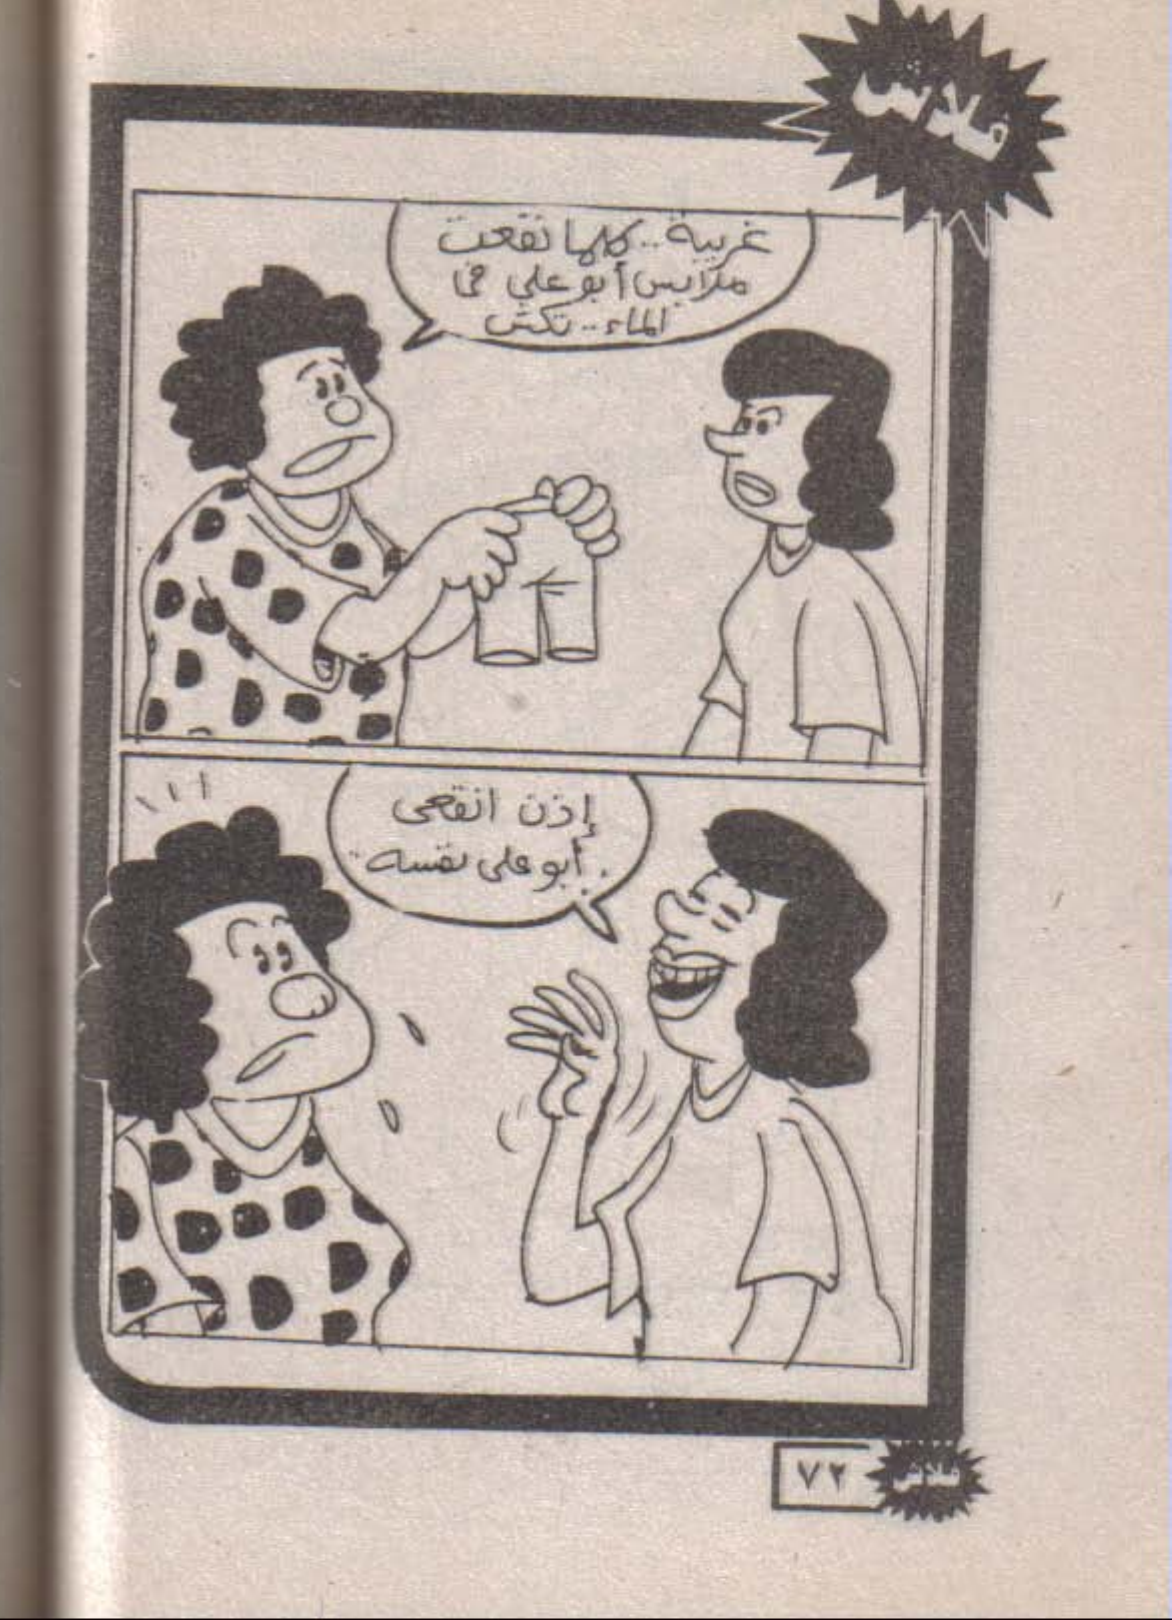 فلاش
غريبة.. كلما نقعت
ملابس أبو علي في
الماء.. تكش
إذن انقعى
أبو على نفسه..
٧٢
فلاش